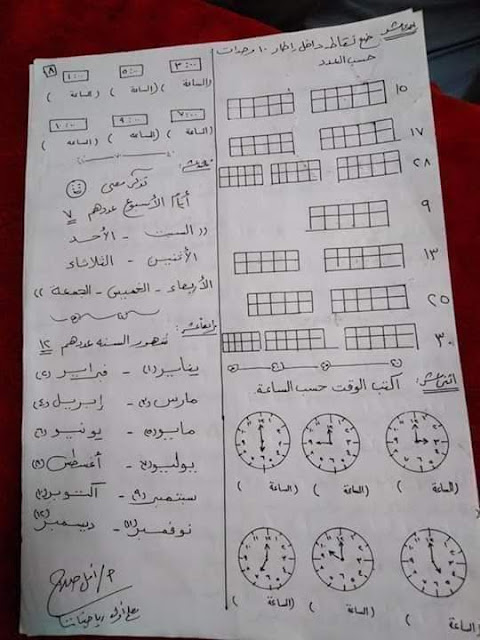 ضع نقاط داخل إطار ١٠ وحدات
حسب العدد
١٥
١٧
٢٨
٩
١٣
٢٥
٣٠
اكتب الوقت حسب الساعة.
(الساعة )
(الساعة )
(الساعة )
(الساعة )
(الساعة )
(الساعة )
٨
٣:٠٠ ٥:٠٠ ١:٠٠
(الساعة ) (الساعة ) (الساعة )
٧:٠٠ ٩:٠٠ ١٠:٠٠
(الساعة ) (الساعة ) (الساعة )
تذكر معى
أيام الأسبوع عددهم ٧
(( السبت - الأحد
الأثنين - الثلاثاء
الأربعاء - الخميس - الجمعة ))
شهور السنه عددهم ١٢
يناير (١) - فبراير (٢)
مارس (٣) - إبريل (٤)
مايو (٥) - يونيو (٦)
يوليو (٧) - أغسطس (٨)
سبتمبر (٩) - أكتوبر (١٠)
نوفمبر (١١) - ديسمبر (١٢)